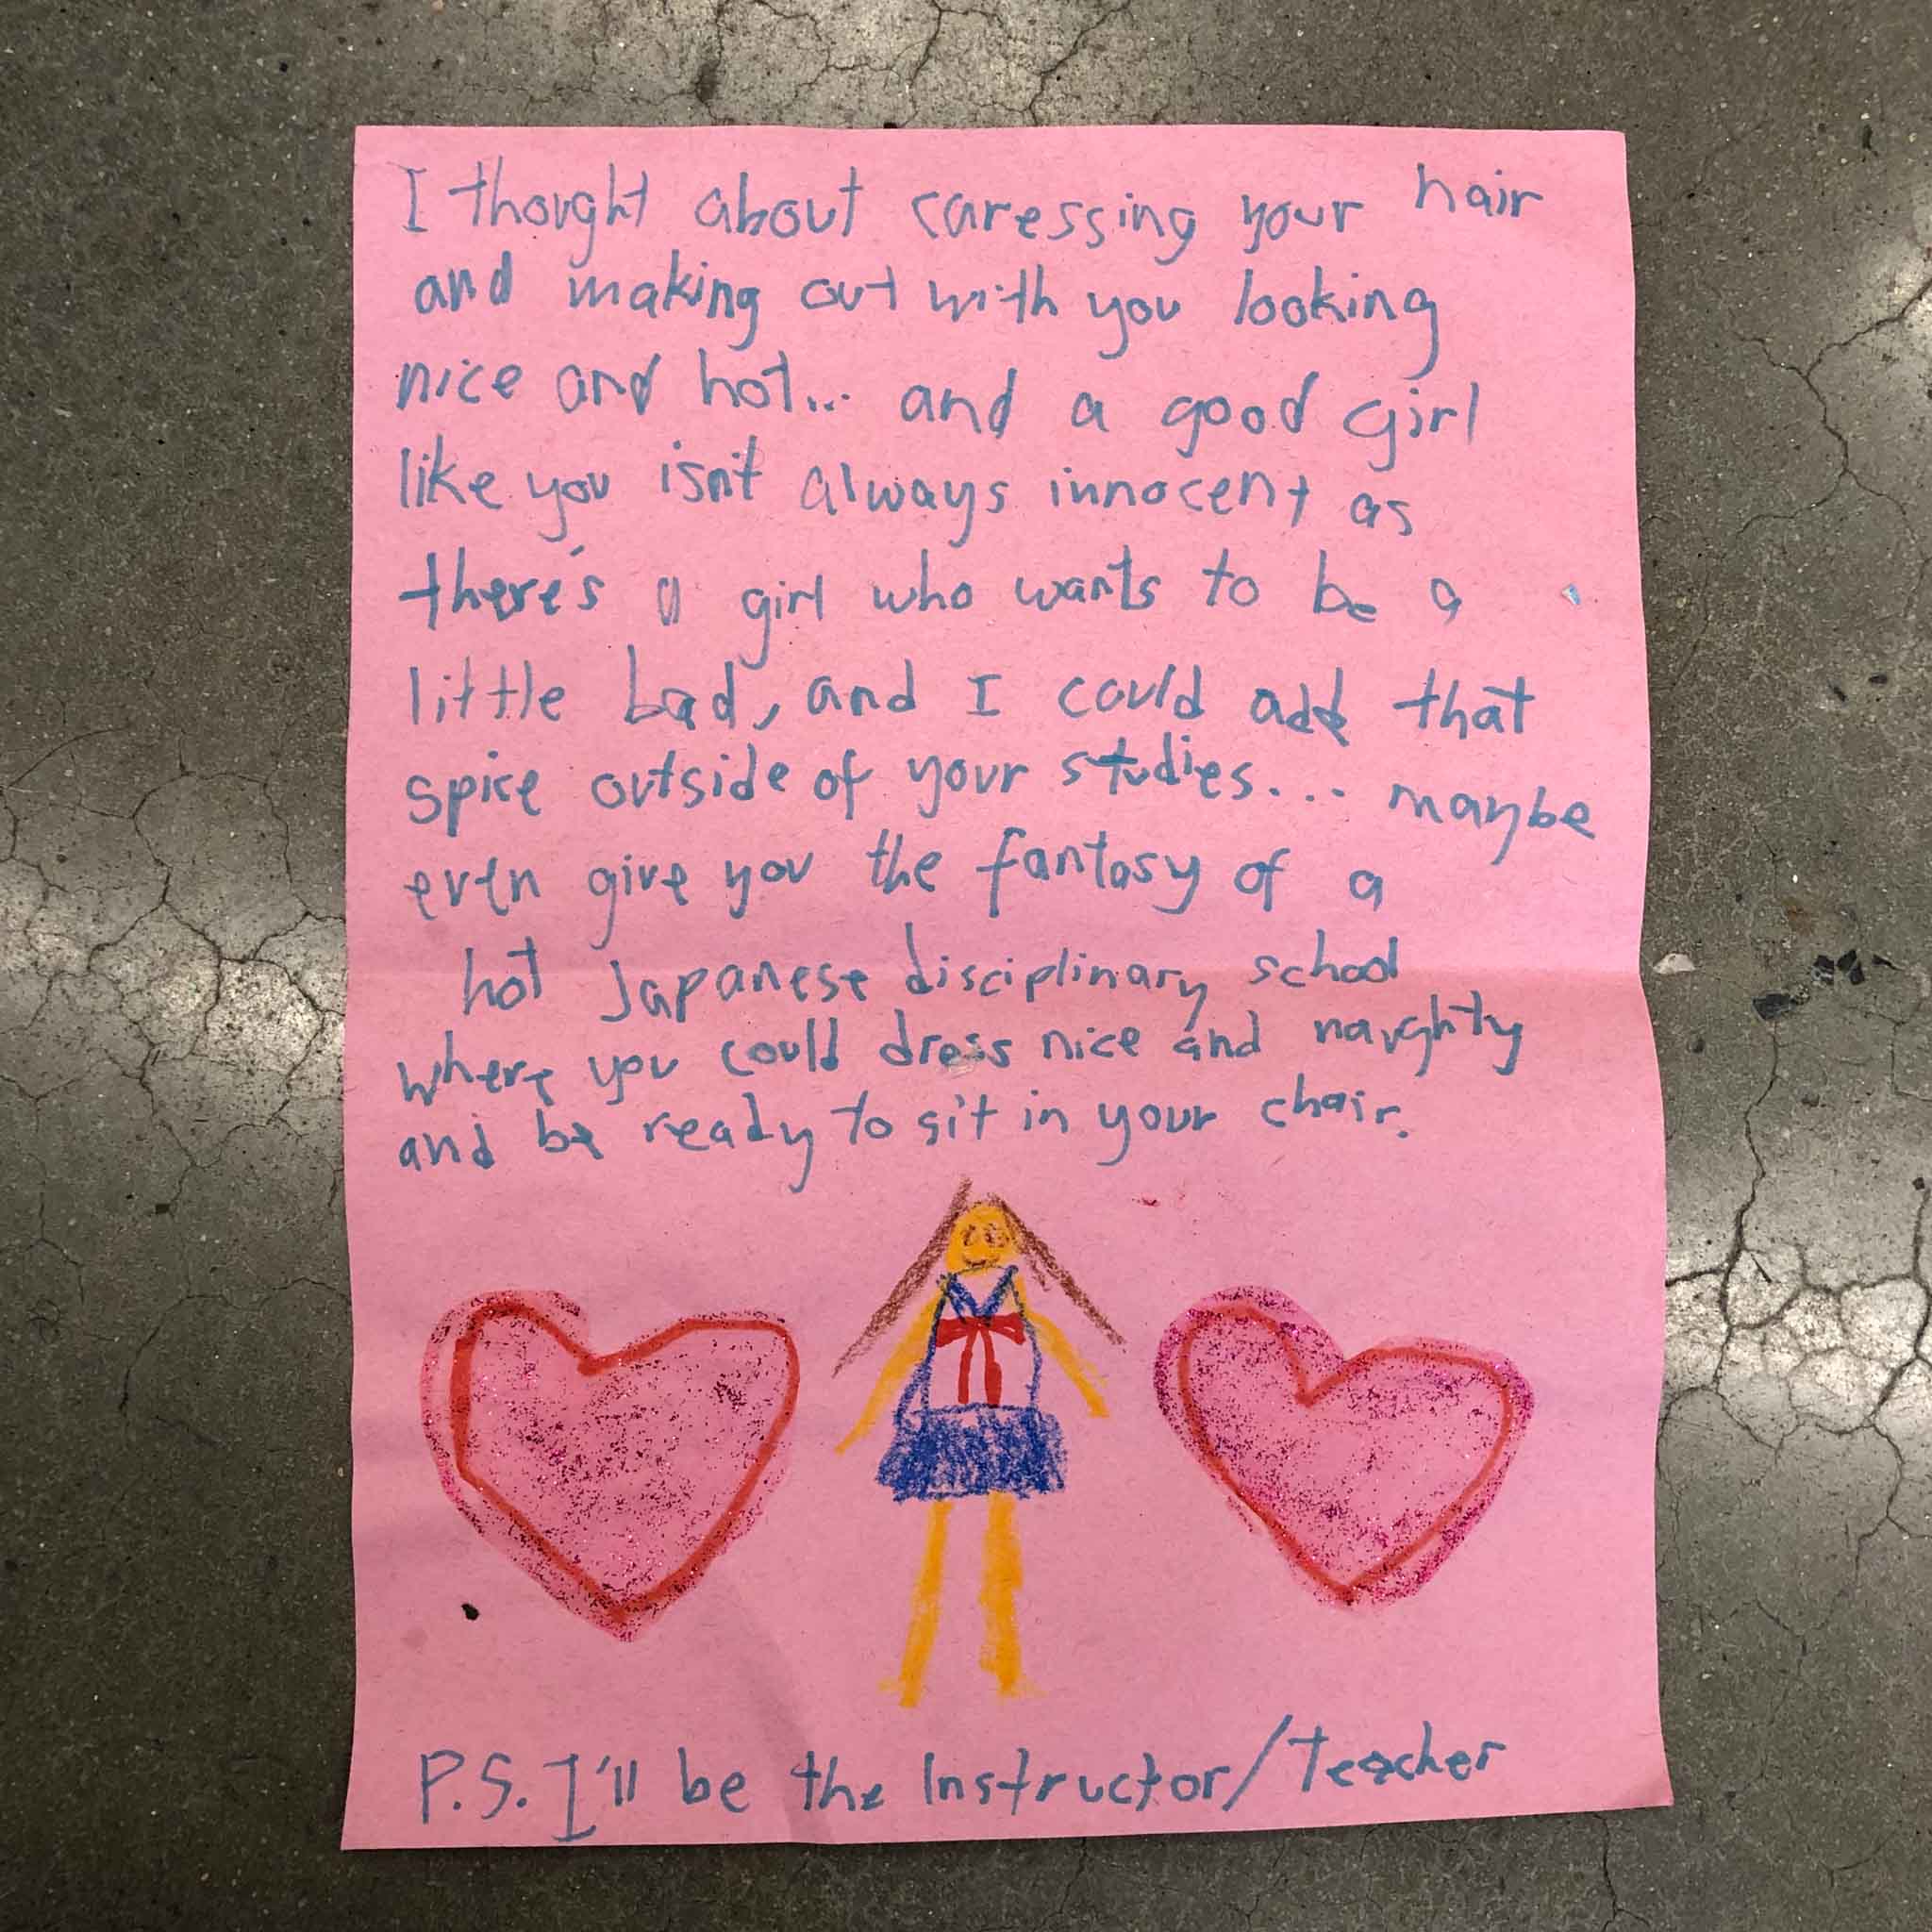 I thought about caressing your hair
and making out with you looking
nice and hot... and a good girl
like you isn't always innocent as
there's a girl who wants to be a
little bad, and I could add that
spice outside of your studies... maybe
even give you the fantasy of a
hot Japanese disciplinary school
where you could dress nice and naughty
and be ready to sit in your chair.
P.S. I'll be the Instructor/Teacher